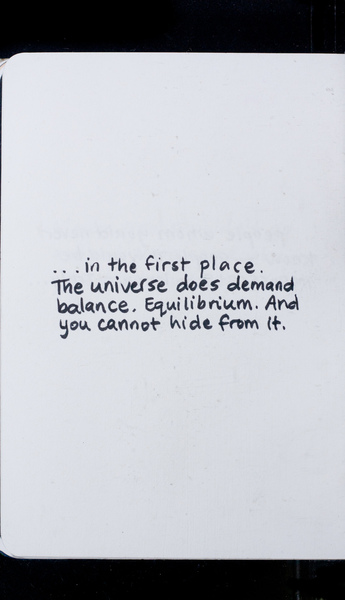 ...in the first place.
The universe does demand
balance. Equilibrium. And
you cannot hide from it.